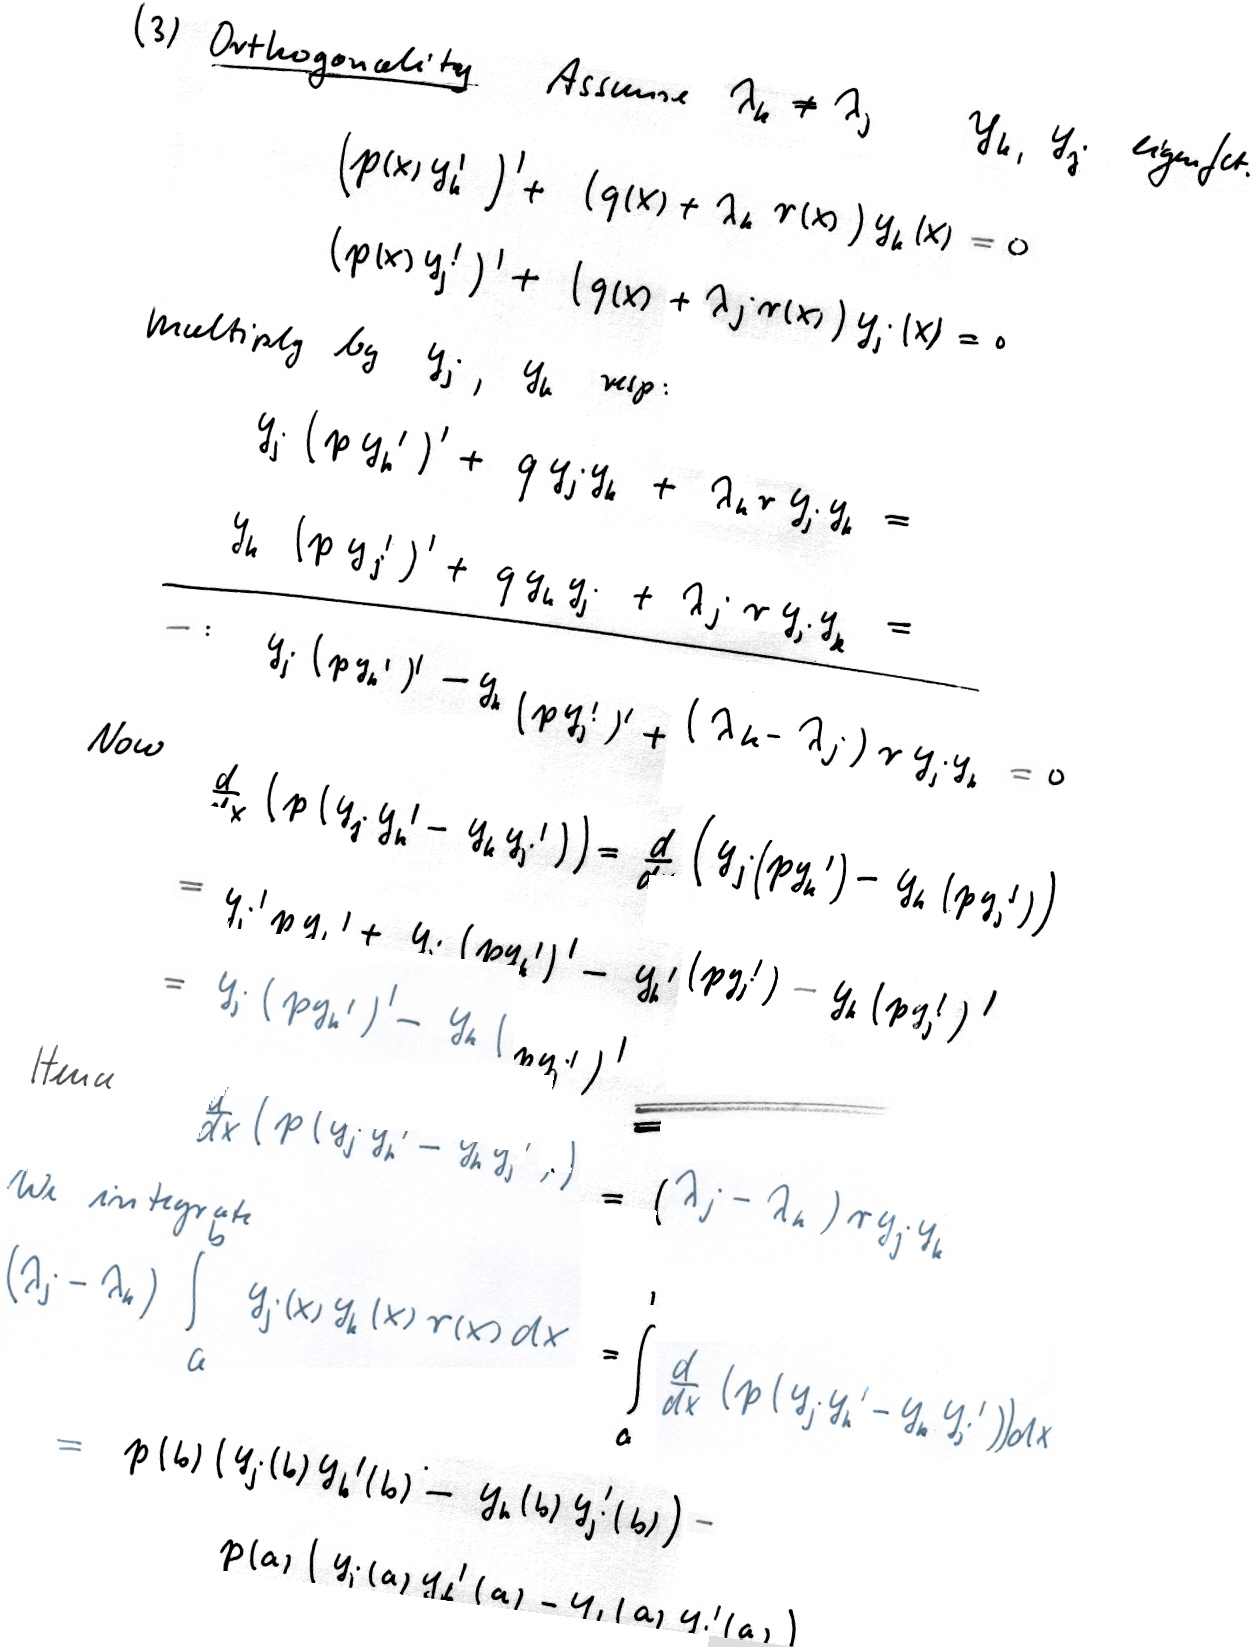 (3) Orthogonality Assume λk ≠ λj yk, yj eigenfct.
(p(x) yk')' + (q(x) + λk r(x)) yk(x) = 0
(p(x) yj')' + (q(x) + λj r(x)) yj(x) = 0
Multiply by yj, yk resp:
yj (p yk')' + q yj yk + λk r yj yk =
yk (p yj')' + q yk yj + λj r yj yk =
− : yj (p yk')' − yk (p yj')' + (λk − λj) r yj yk = 0
Now
d/dx (p (yj yk' − yk yj')) = d/d (yj (p yk') − yk (p yj'))
= yj' p yk' + yj (p yk')' − yk' (p yj') − yk (p yj')'
= yj (p yk')' − yk (p yj')'
Hence
d/dx (p (yj yk' − yk yj')) = (λj − λk) r yj yk
We integrate
(λj − λk) ∫_a^b yj(x) yk(x) r(x) dx = ∫_a d/dx (p (yj yk' − yk yj')) dx
= p(b) (yj(b) yk'(b) − yk(b) yj'(b)) −
p(a) (yj(a) yk'(a) − yk(a) yj'(a))